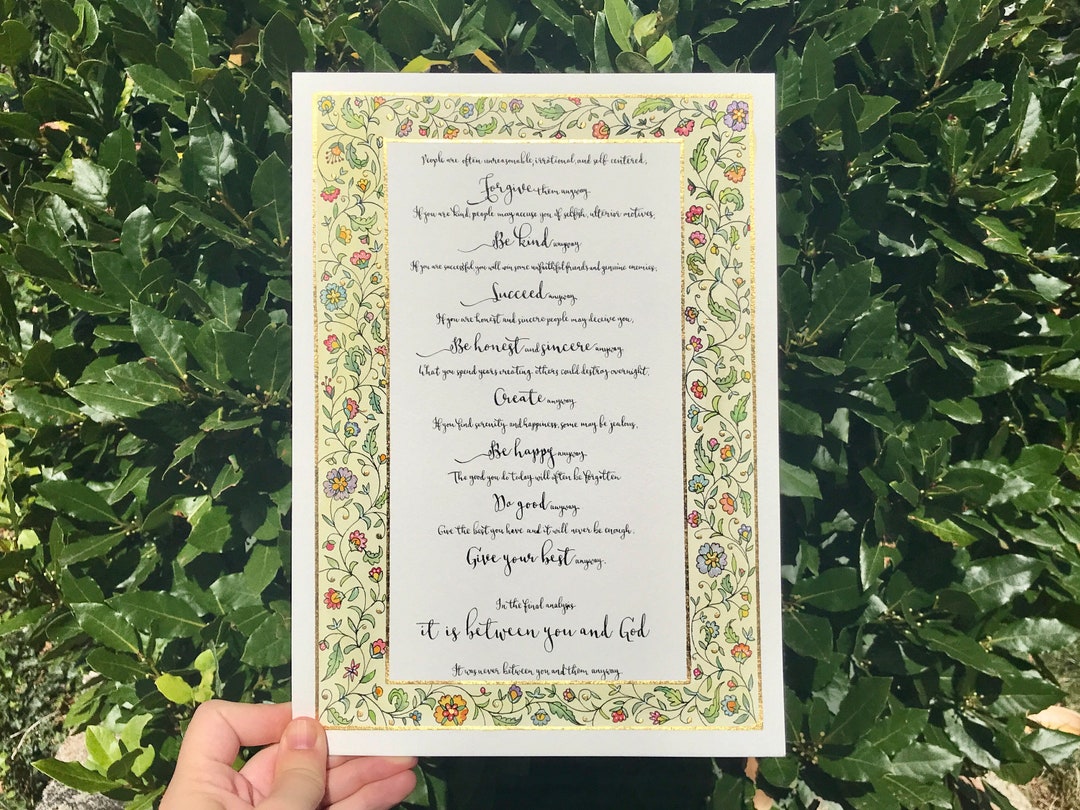 People are often unreasonable, irrational, and self centered,
Forgive them anyway.
If you are kind, people may accuse you of selfish, ulterior motives,
Be kind anyway.
If you are successful you will win some unfaithful friends and genuine enemies,
Succeed anyway.
If you are honest and sincere people may deceive you,
Be honest and sincere anyway.
What you spend years creating, others could destroy overnight,
Create anyway.
If you find serenity and happiness, some may be jealous,
Be happy anyway.
The good you do today, will often be forgotten
Do good anyway.
Give the best you have and it will never be enough,
Give your best anyway.
In the final analysis
it is between you and God
It was never between you and them anyway.